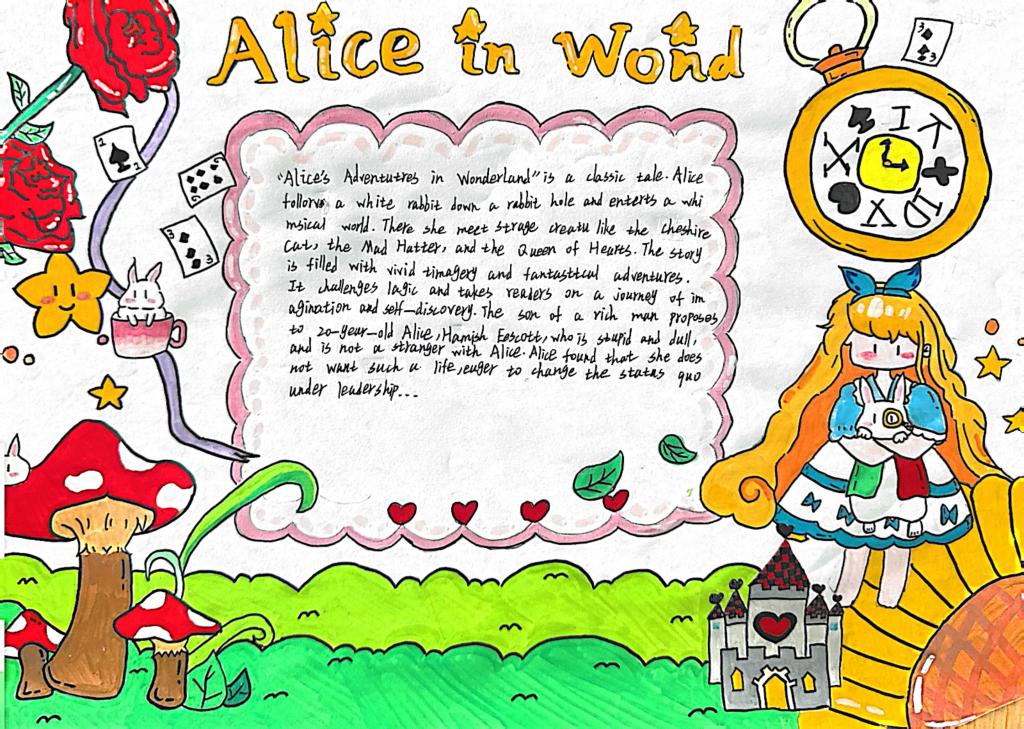 Alice in Wond
"Alice's Adventutres in Wonderland" is a classic tale. Alice
follorvs a white rabbit down a rabbit hole and enterts a whi
msical world. There she meet strage creatu like the Cheshire
Cat, the Mad Hatter, and the Queen of Hearts. The story
is filled with vivid timagery and fantasttcal adventures.
It challenges lagic and takes readers on a journey of im
agination and self-discovery. The son of a rich man proposes
to 20-year-old Alice, Hamish Eescott, who is stupid and dull,
and is not a stranger with Alice. Alice found that she does
not want such a life, euger to change the status quo
under leadership...